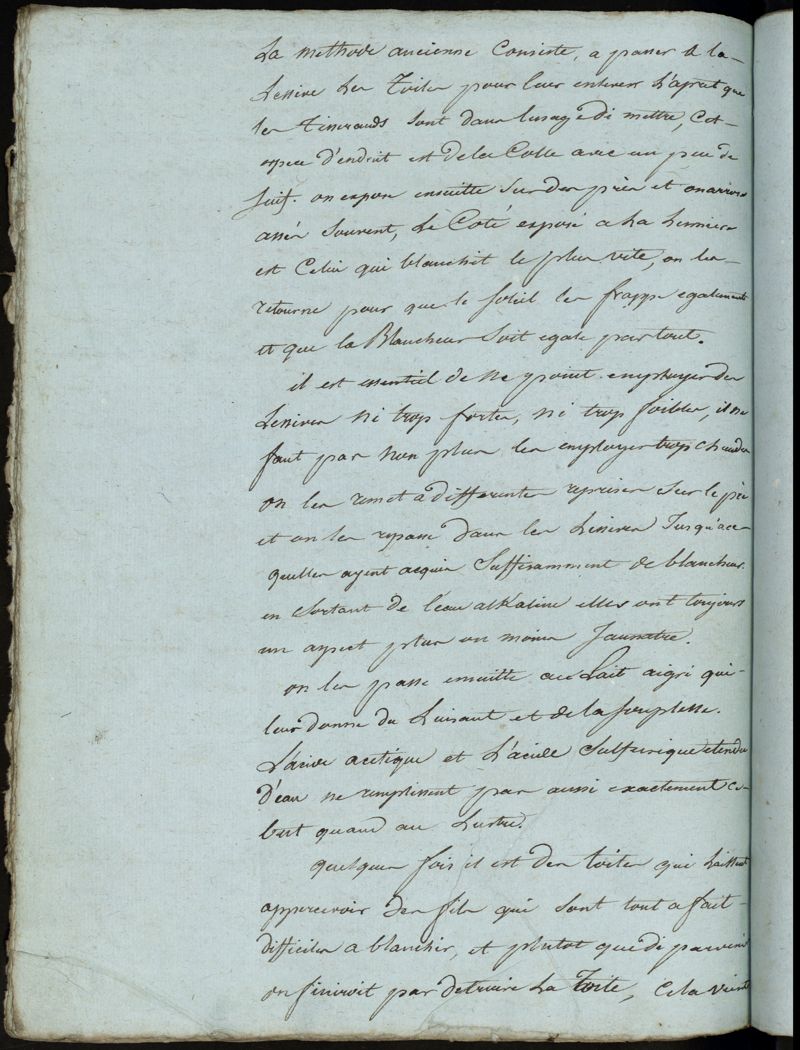 La methode ancienne Consiste, a passer a la-
Lessive Les Toiles pour leur enlever L'apret que
les tisserands sont dans lusage di mettre, Cet-
espece d'enduit est de la Colle avec un peu de
suif. on expose ensuitte sur des près et on arrose
assés souvent, Le Coté exposé a La Lumiere
est Celui qui blanchit le plus vite, on les-
retourne pour que le soleil les frappe egalement
et que la Blancheur soit egale partout.
il est essentiel de ne point employer des
Lessives ni trop fortes, ni trop foibles, il ne
faut pas non plus les employer trop chaudes
on les remet a differentes reprises sur le pré
et on les repasse dans les Lessives Jusqu'ace-
quelles ayent acquis suffisamment de blancheur.
en sortant de l'eau alkaline elles ont toujours
un aspect plus ou moins Jaunatre.
on les passe ensuitte au Lait aigri qui-
leur donne du Luisant et de la souplesse.
L'acide acetique et L'acide Sulfurique etendu
d'eau ne remplissent pas aussi exactement ce-
but quand au Lustre.
quelques fois il est des toiles qui Laissent
appercevoir des fils qui sont tout a fait-
difficiles a blanchir, et plutot que di parvenir
on finiroit par detruire La Toile, Cela vient